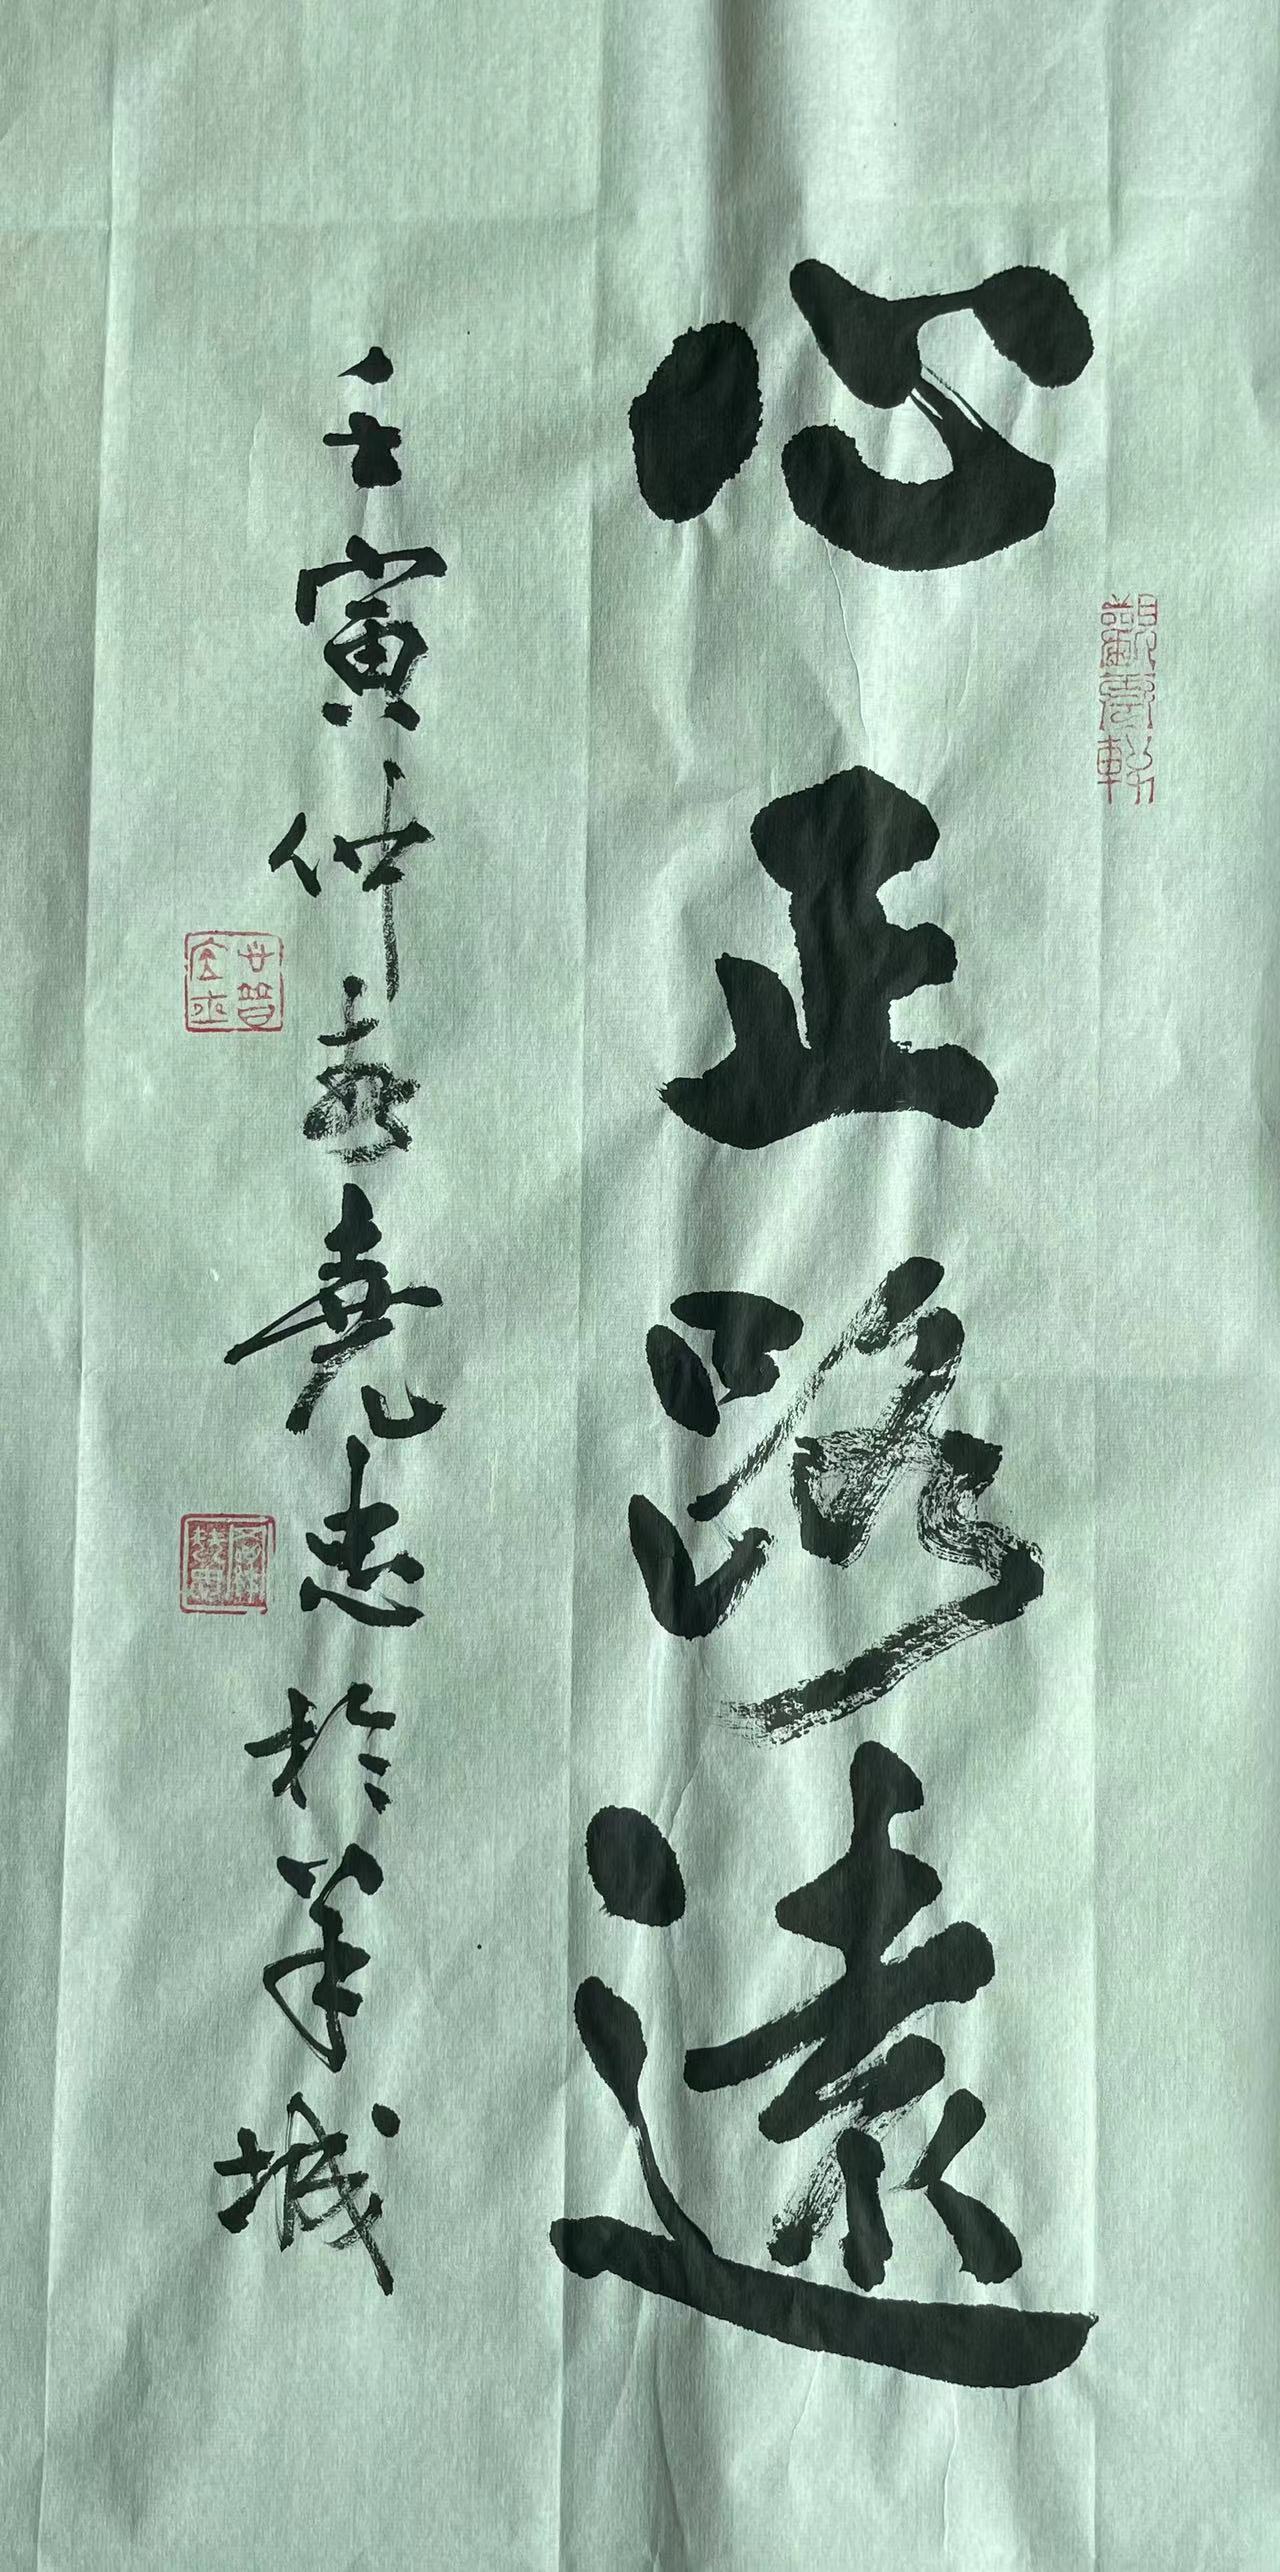 心正路遠
壬寅仲春堯忠於羊城